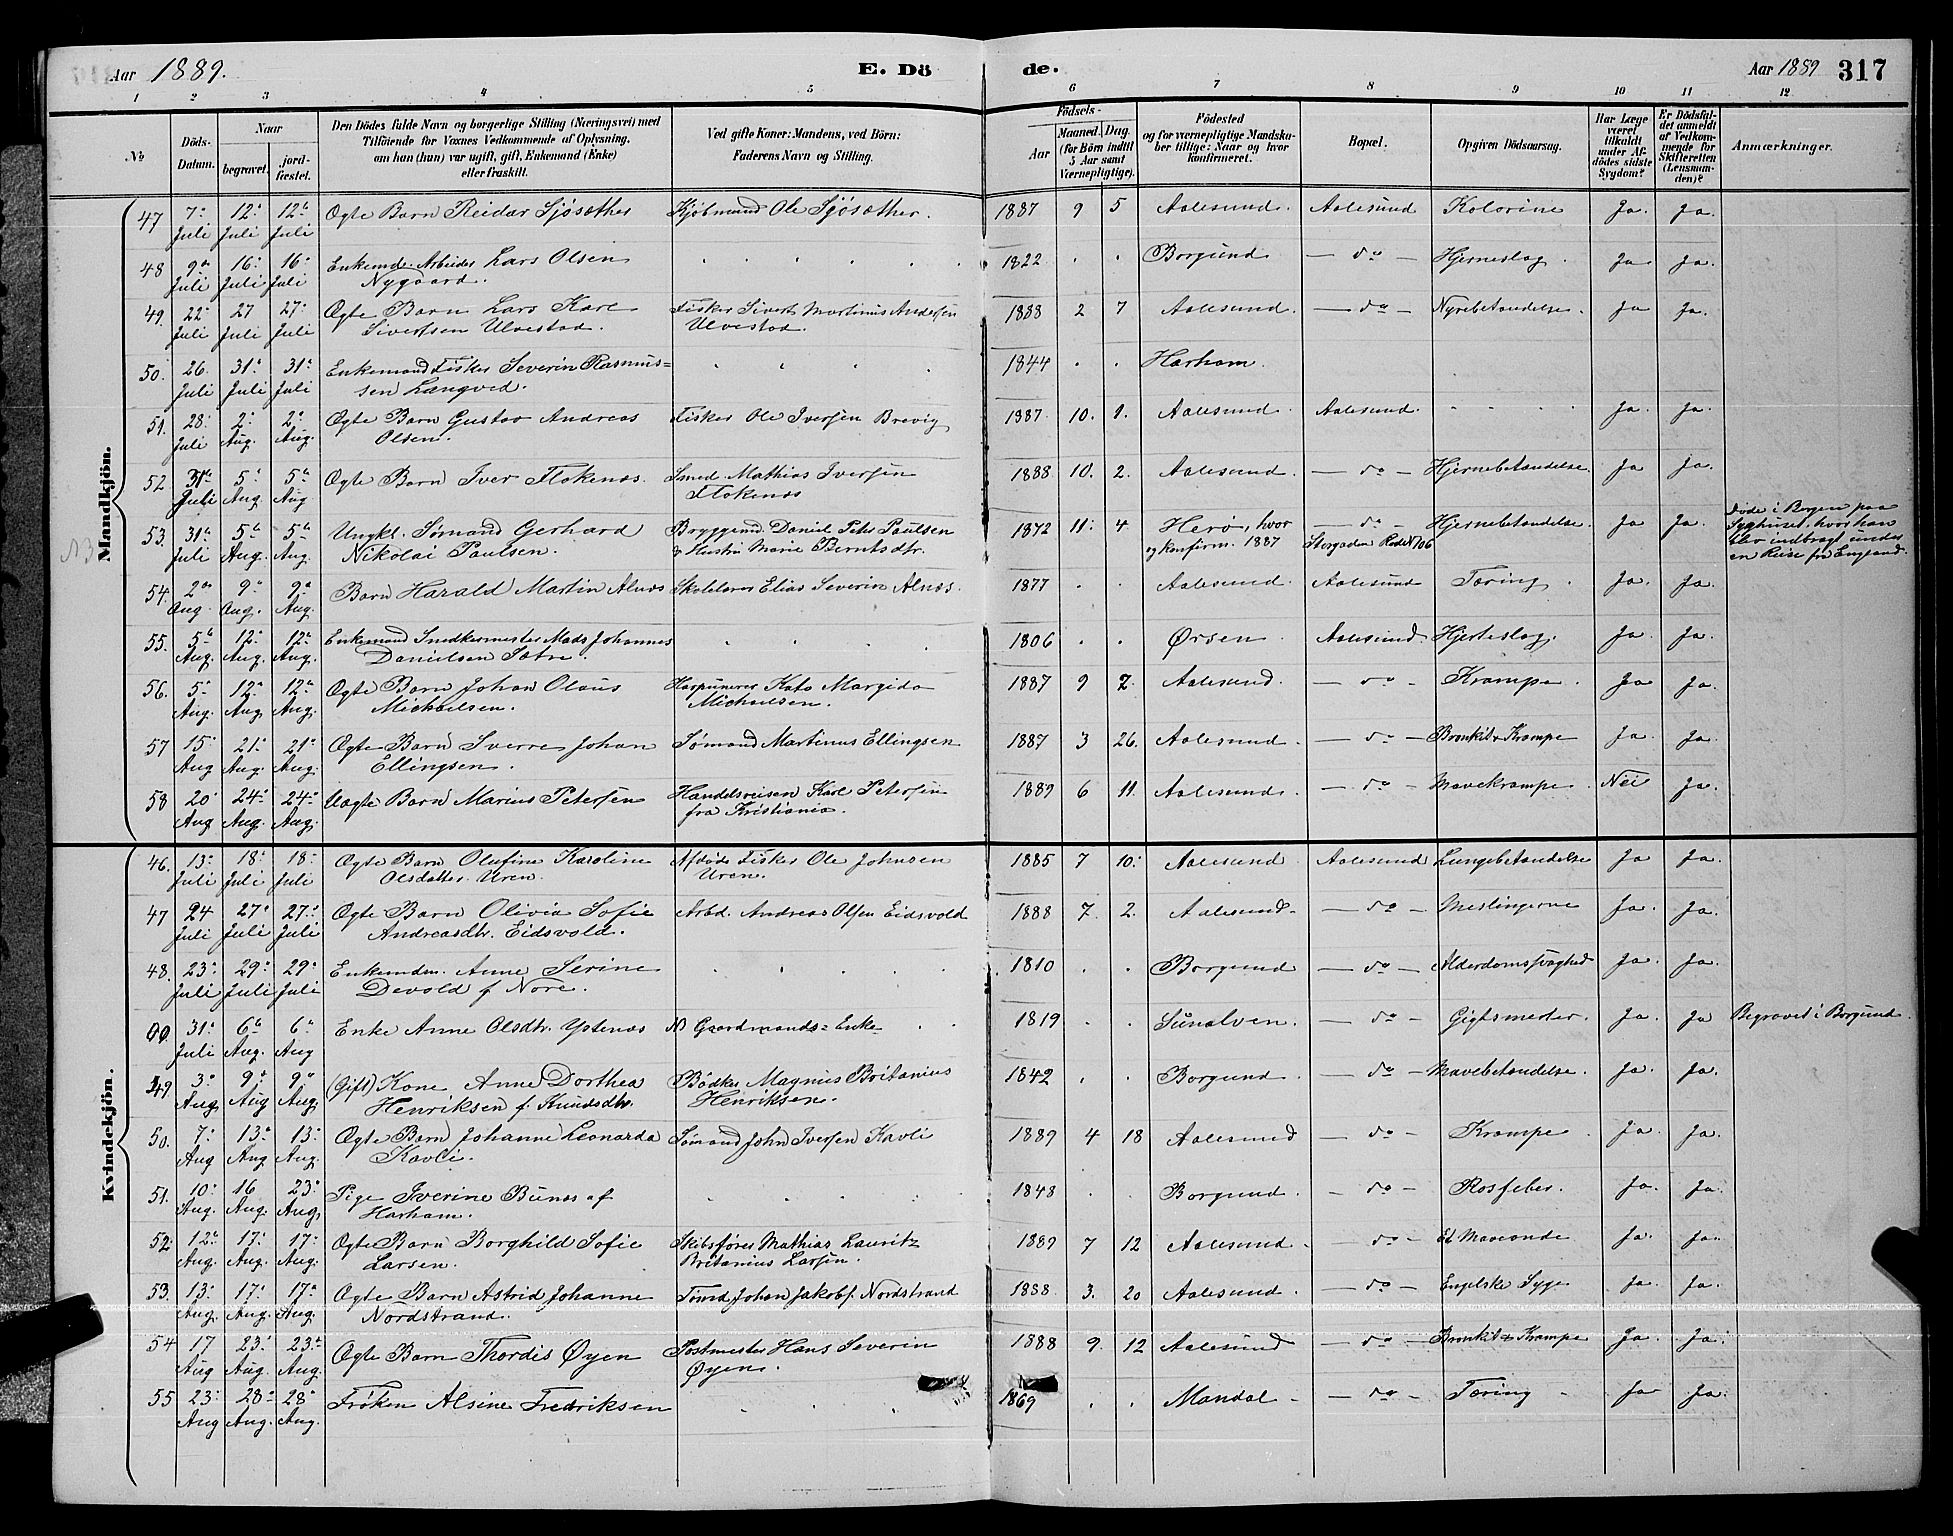 Aar 1889. E. Dö de. Aar 1889 317
1 2 3 4 5 6 7 8 9 10 11 12
No
Döds-Datum.
Naar
begravet.
jord-fæstet.
Den Dödes fulde Navn og borgerlige Stilling (Næringsvei) med
Tilföiende for Voxnes Vedkommende af Oplysning,
om han (hun) var ugift, gift, Enkemand (Enke)
eller fraskilt.
Ved gifte Koner: Mandens, ved Börn:
Faderens Navn og Stilling.
Födsels-
Aar
Maaned. Dag.
(for Börn indtil
5 Aar samt
Værnepligtige).
Födested
og for værnepligtige Mandska-
ber tillige: Naar og hvor
konfirmeret.
Bopæl.
Opgiven Dödsaarsag.
Har Læge
været
tilkaldt
under Af-
dödes sidste
Sygdom?
Er Dödsfal-
det anmeldt
af Vedkom-
mende for
Skifteretten
(Lensman-
den)?
Anmærkninger.
Mandkjön.
47 7. Juli 12. Juli 12. Juli Ægte Barn Reidar Sjøsæther Kjøbmand Ole Sjøsæther. 1887 9 5 Aalesund. Aalesund Kolorine Ja. Ja.
48 9. Juli 16. Juli 16. Juli Enkemd. Arbeider Lars Olsen
Nygaard. 1822 Borgund — do — Hjerneslag. Ja Ja.
49. 22. Juli 27 Juli 27. Juli Ægte Barn Lars Karl
Sivertsen Ulvestad. Fisker Sivert Martinus Andersen
Ulvestad. 1888 2 7 Aalesund. — do — Nyrebetændelse. Ja Ja.
50. 26. Juli 31. Juli 31. Juli Enkemand Fisker Severin Rasmus=
sen Langved. 1844 Harham.
51. 28. Juli 2. Aug. 2. Aug. Ægte Barn Gustav Andreas
Olsen. Fisker Ole Iversen Brevig 1887 10. 1. Aalesund. Aalesund. Ja. Ja.
52 31. Juli 5. Aug. 5. Aug Ægte Barn Iver Flokenæs. Smed Mathias Iversen
Flokenæs 1888 10. 2. Aalesund. — do — Hjernebetændelse. Ja Ja.
53. 31. Juli 5. Aug. 5. Aug. Ungkl. Sømand Gerhard
Nikolai Paulsen. Bryggemd. Daniel Peter Paulsen
& Hustru Marie Berntsdtr. 1872 11. 4 Herø, hvor
og konfirm. 1887 — do —
Storgaden Rode N 106 Hjernebetændelse. Ja Ja. Døde i Bergen paa
Syghuset, hvor han
blev indbragt under
en Reise fra England.
54. 2. Aug. 9. Aug. 9. Aug. Barn Harald Martin Alnæs Skolelærer Elias Severin Alnæs. 1877 Aalesund. Aalesund Tæring. Ja. Ja.
55. 5. Aug. 12. Aug. 12. Aug. Enkemand Snedkermester Mads Johannes
Danielsen Sætre. 1806 Ørsen. Aalesund. Hjerteslag. Ja. Ja.
56. 5. Aug. 12. Aug. 12. Aug. Ægte Barn Johan Olaus
Michaelsen. Harpunerer Kato Margido
Michaelsen. 1887 9 2. Aalesund. — do — Krampe. Ja Ja.
57 15. Aug 21. Aug. 21. Aug. Ægte Barn Sverre Johan
Ellingsen. Sømand Martinus Ellingsen 1887 3 26. Aalesund. — do — Bronkit & Krampe Ja. Ja.
58 20. Aug 24. Aug. 24. Aug. Uægte Barn Marius Petersen Handelsreisen Karl Petersen
fra Kristiania. 1889 6 11. Aalesund. — do — Mavekrampe. Nei Ja.
Kvindekjön.
46. 13. Juli 18. Juli 18. Juli Ægte Barn Olufine Karoline
Olsdatter Uren. Afdøde Fisker Ole Johnsen
Uren. 1885 7 10. Aalesund Aalesund Lungebetændelse Ja Ja.
47 24 Juli 27. Juli 27. Juli Ægte Barn Olivia Sofie
Andreasdtr. Eidsvold. Arbd. Andreas Olsen Eidsvold 1888 7 2. Aalesund. — do — Meslingerne Ja. Ja.
48. 23. Juli 29. Juli 29. Juli Enkemdm. Anne Serine
Devold f. Nore. 1810 Borgund — do — Alderdomssvaghed Ja. Ja.
00. 31. Juli 6. Aug. 6. Aug Enke Anne Olsdtr. Ystenæs Gaardmands=Enke 1819 Sunelven. — do — Gigtsmerter. Ja. Ja Begravet i Borgund.
49 3. Aug. 9. Aug 9. Aug. (Gift) Kone Anne Dorthea
Henriksen f. Knudsdtr. Bødker Magnus Britanius
Henriksen. 1842 Borgund. — do — Mavebetændelse. Ja. Ja.
50. 7. Aug 13. Aug 13. Aug. Ægte Barn Johanne Leonarda
Kavli. Sømand John Iversen Kavli 1889 4 18 Aalesund — do — Krampe. Ja. Ja.
51. 10. Aug. 16 Aug. 23. Aug. Pige Iverine Bunæs af
Harham. 1848 Borgund. — do — Rosfeber. Ja. Ja.
52. 12. Aug. 17. Aug. 17. Aug. Ægte Barn Borghild Sofie
Larsen. Skibsfører Mathias Lauritz
Britanius Larsen. 1889 7 12 Aalesund. — do — Maveonde Ja. Ja.
53. 13. Aug. 17. Aug. 17. Aug. Ægte Barn Astrid Johanne
Nordstrand. Tømd Johan Jakobs. Nordstrand 1888 3. 20 Aalesund. — do Engelske Syge Ja. Ja.
54 17 Aug 23. Aug. 23. Aug. Ægte Barn Thordis Øyen Postmester Hans Severin
Øyen. 1888 9. 12 Aalesund — do — Bronkit & Krampe Ja. Ja.
55 23. Aug 28. Aug. 28. Aug. Frøken Alsine Fredriksen 1869 Mandal. — do — Tæring. Ja Ja.